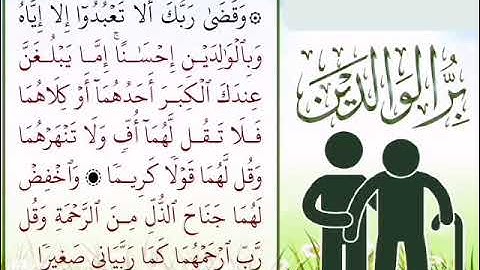 ۞ وَقَضَىٰ رَبُّكَ أَلَّا تَعْبُدُوٓا۟ إِلَّآ إِيَّاهُ
وَبِٱلْوَٰلِدَيْنِ إِحْسَـٰنًا ۚ إِمَّا يَبْلُغَنَّ
عِندَكَ ٱلْكِبَرَ أَحَدُهُمَآ أَوْ كِلَاهُمَا
فَلَا تَقُل لَّهُمَآ أُفٍّ وَلَا تَنْهَرْهُمَا
وَقُل لَّهُمَا قَوْلًا كَرِيمًا ۝ وَٱخْفِضْ
لَهُمَا جَنَاحَ ٱلذُّلِّ مِنَ ٱلرَّحْمَةِ وَقُل
رَّبِّ ٱرْحَمْهُمَا كَمَا رَبَّيَانِى صَغِيرًا
بِرُّ الوَالِدَيْنِ